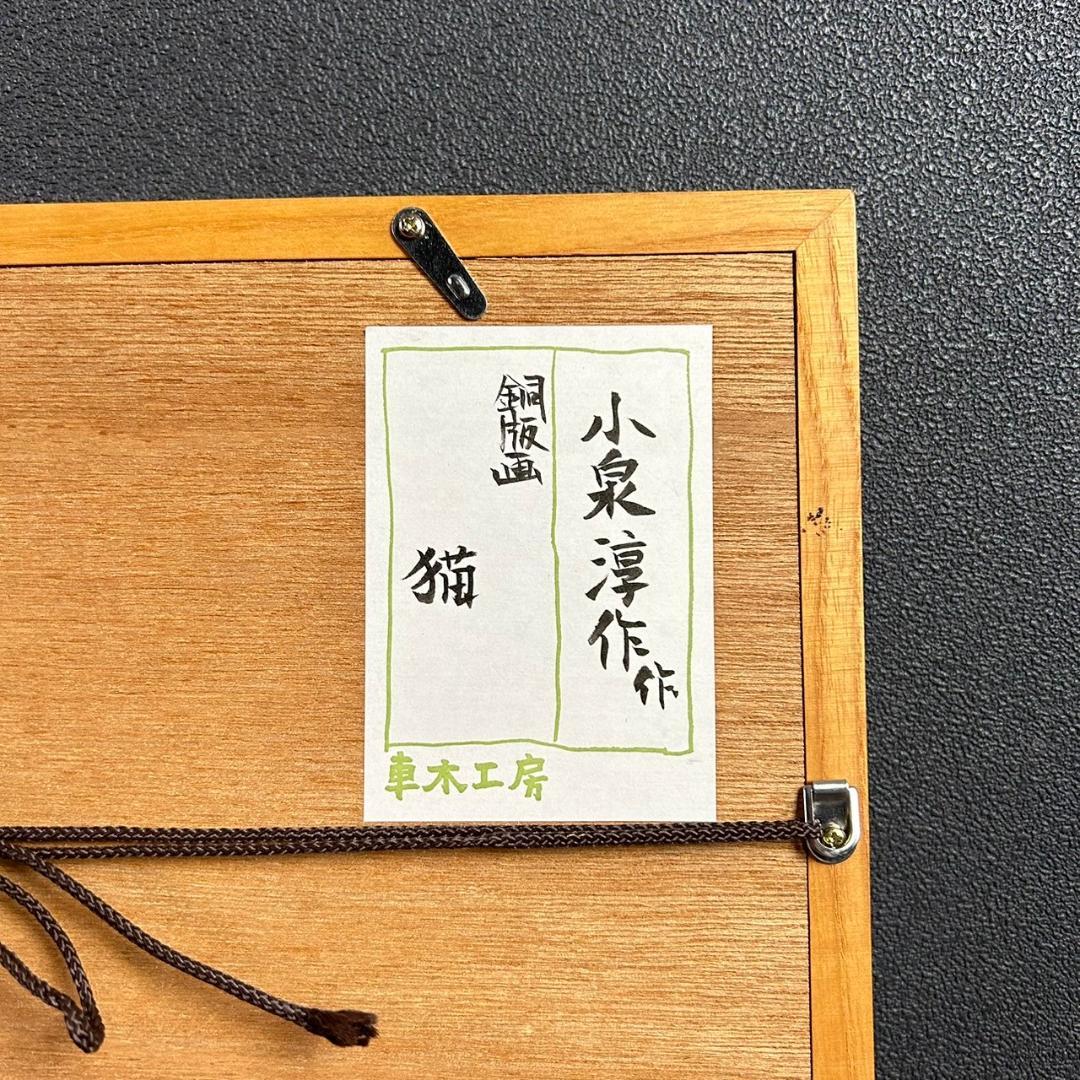 小泉淳作作
銅版画
猫
車木工房